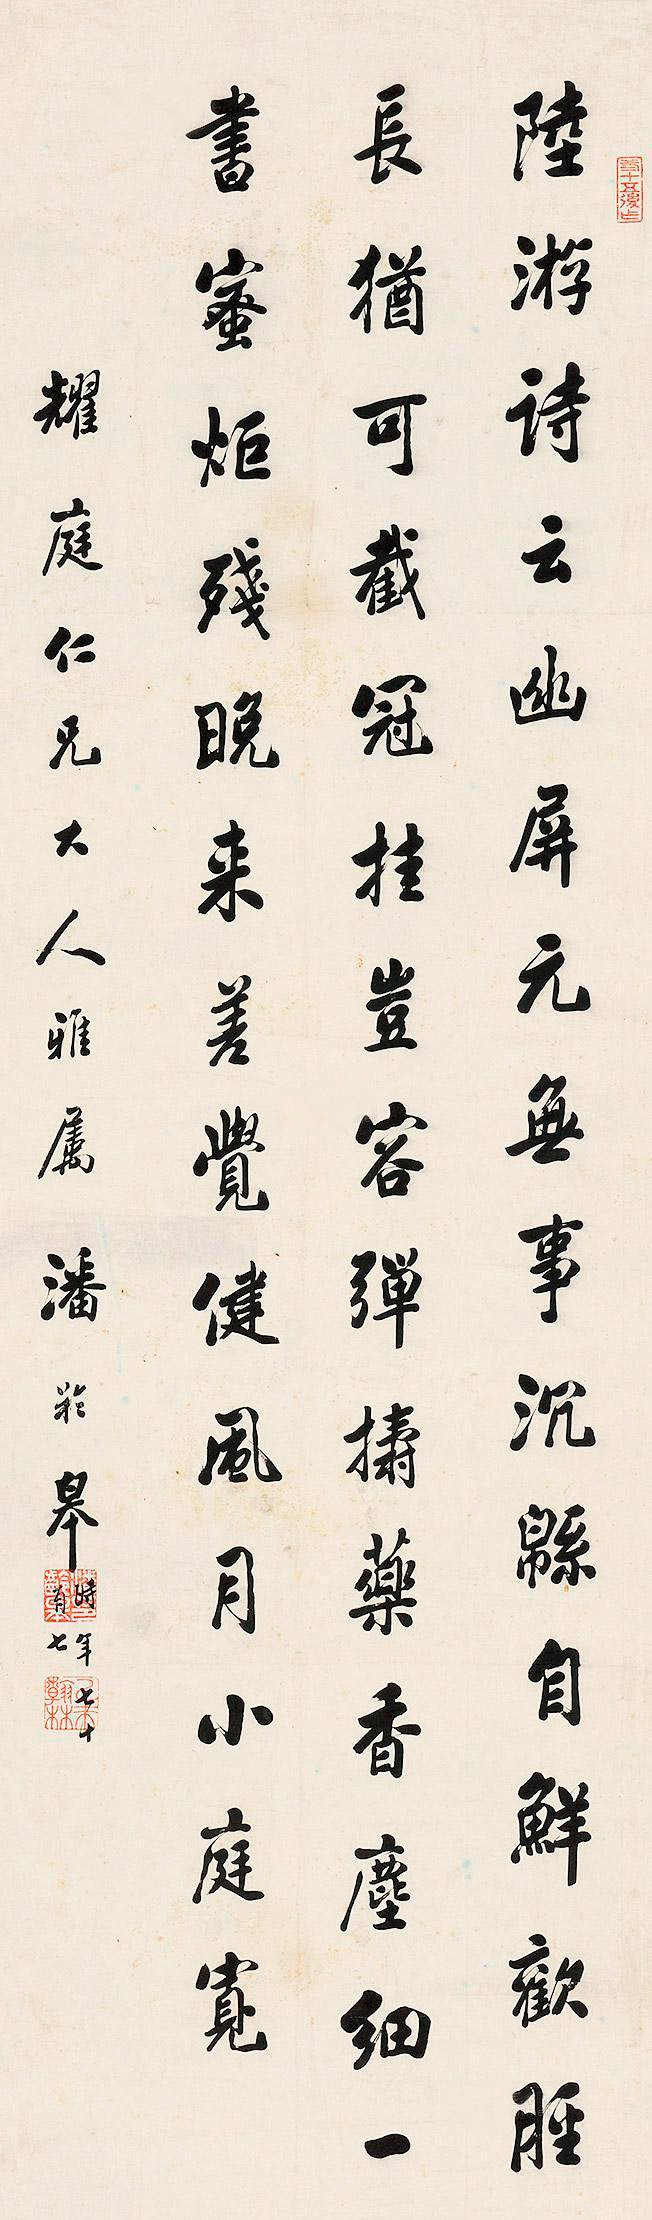 陸游詩云幽屏元無事沉緜自鮮歡脛
長猶可截冠挂豈容彈擣藥香塵細一
書蜜炬殘晚来差覺健風月小庭寬
耀庭仁兄大人雅属潘齡皋時年七十有七